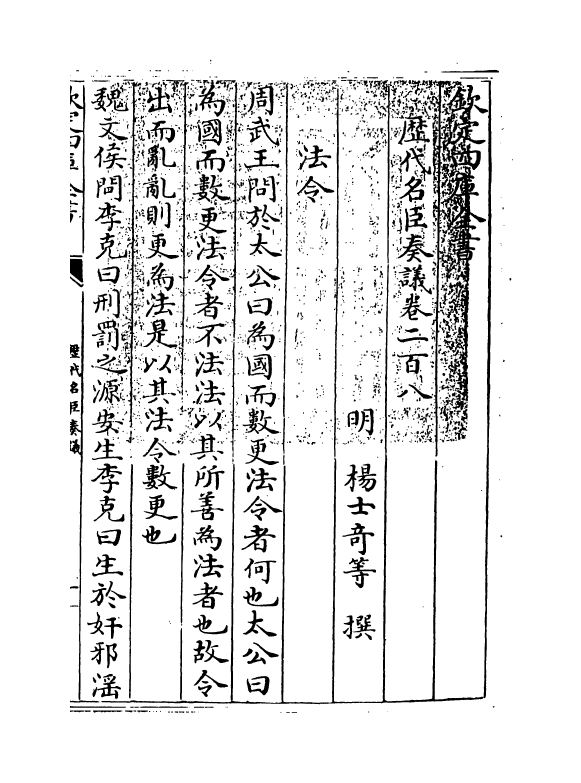 欽定四庫全書
歴代名臣奏議卷二百八
明　楊士竒等　撰
法令
周武王問於太公曰為國而數更法令者何也太公曰
為國而數更法令者不法法以其所善為法者也故令
出而亂亂則更為法是以其法令數更也
魏文侯問李克曰刑罰之源安生李克曰生於奸邪淫
欽定四庫全書
歴代名臣奏議
一